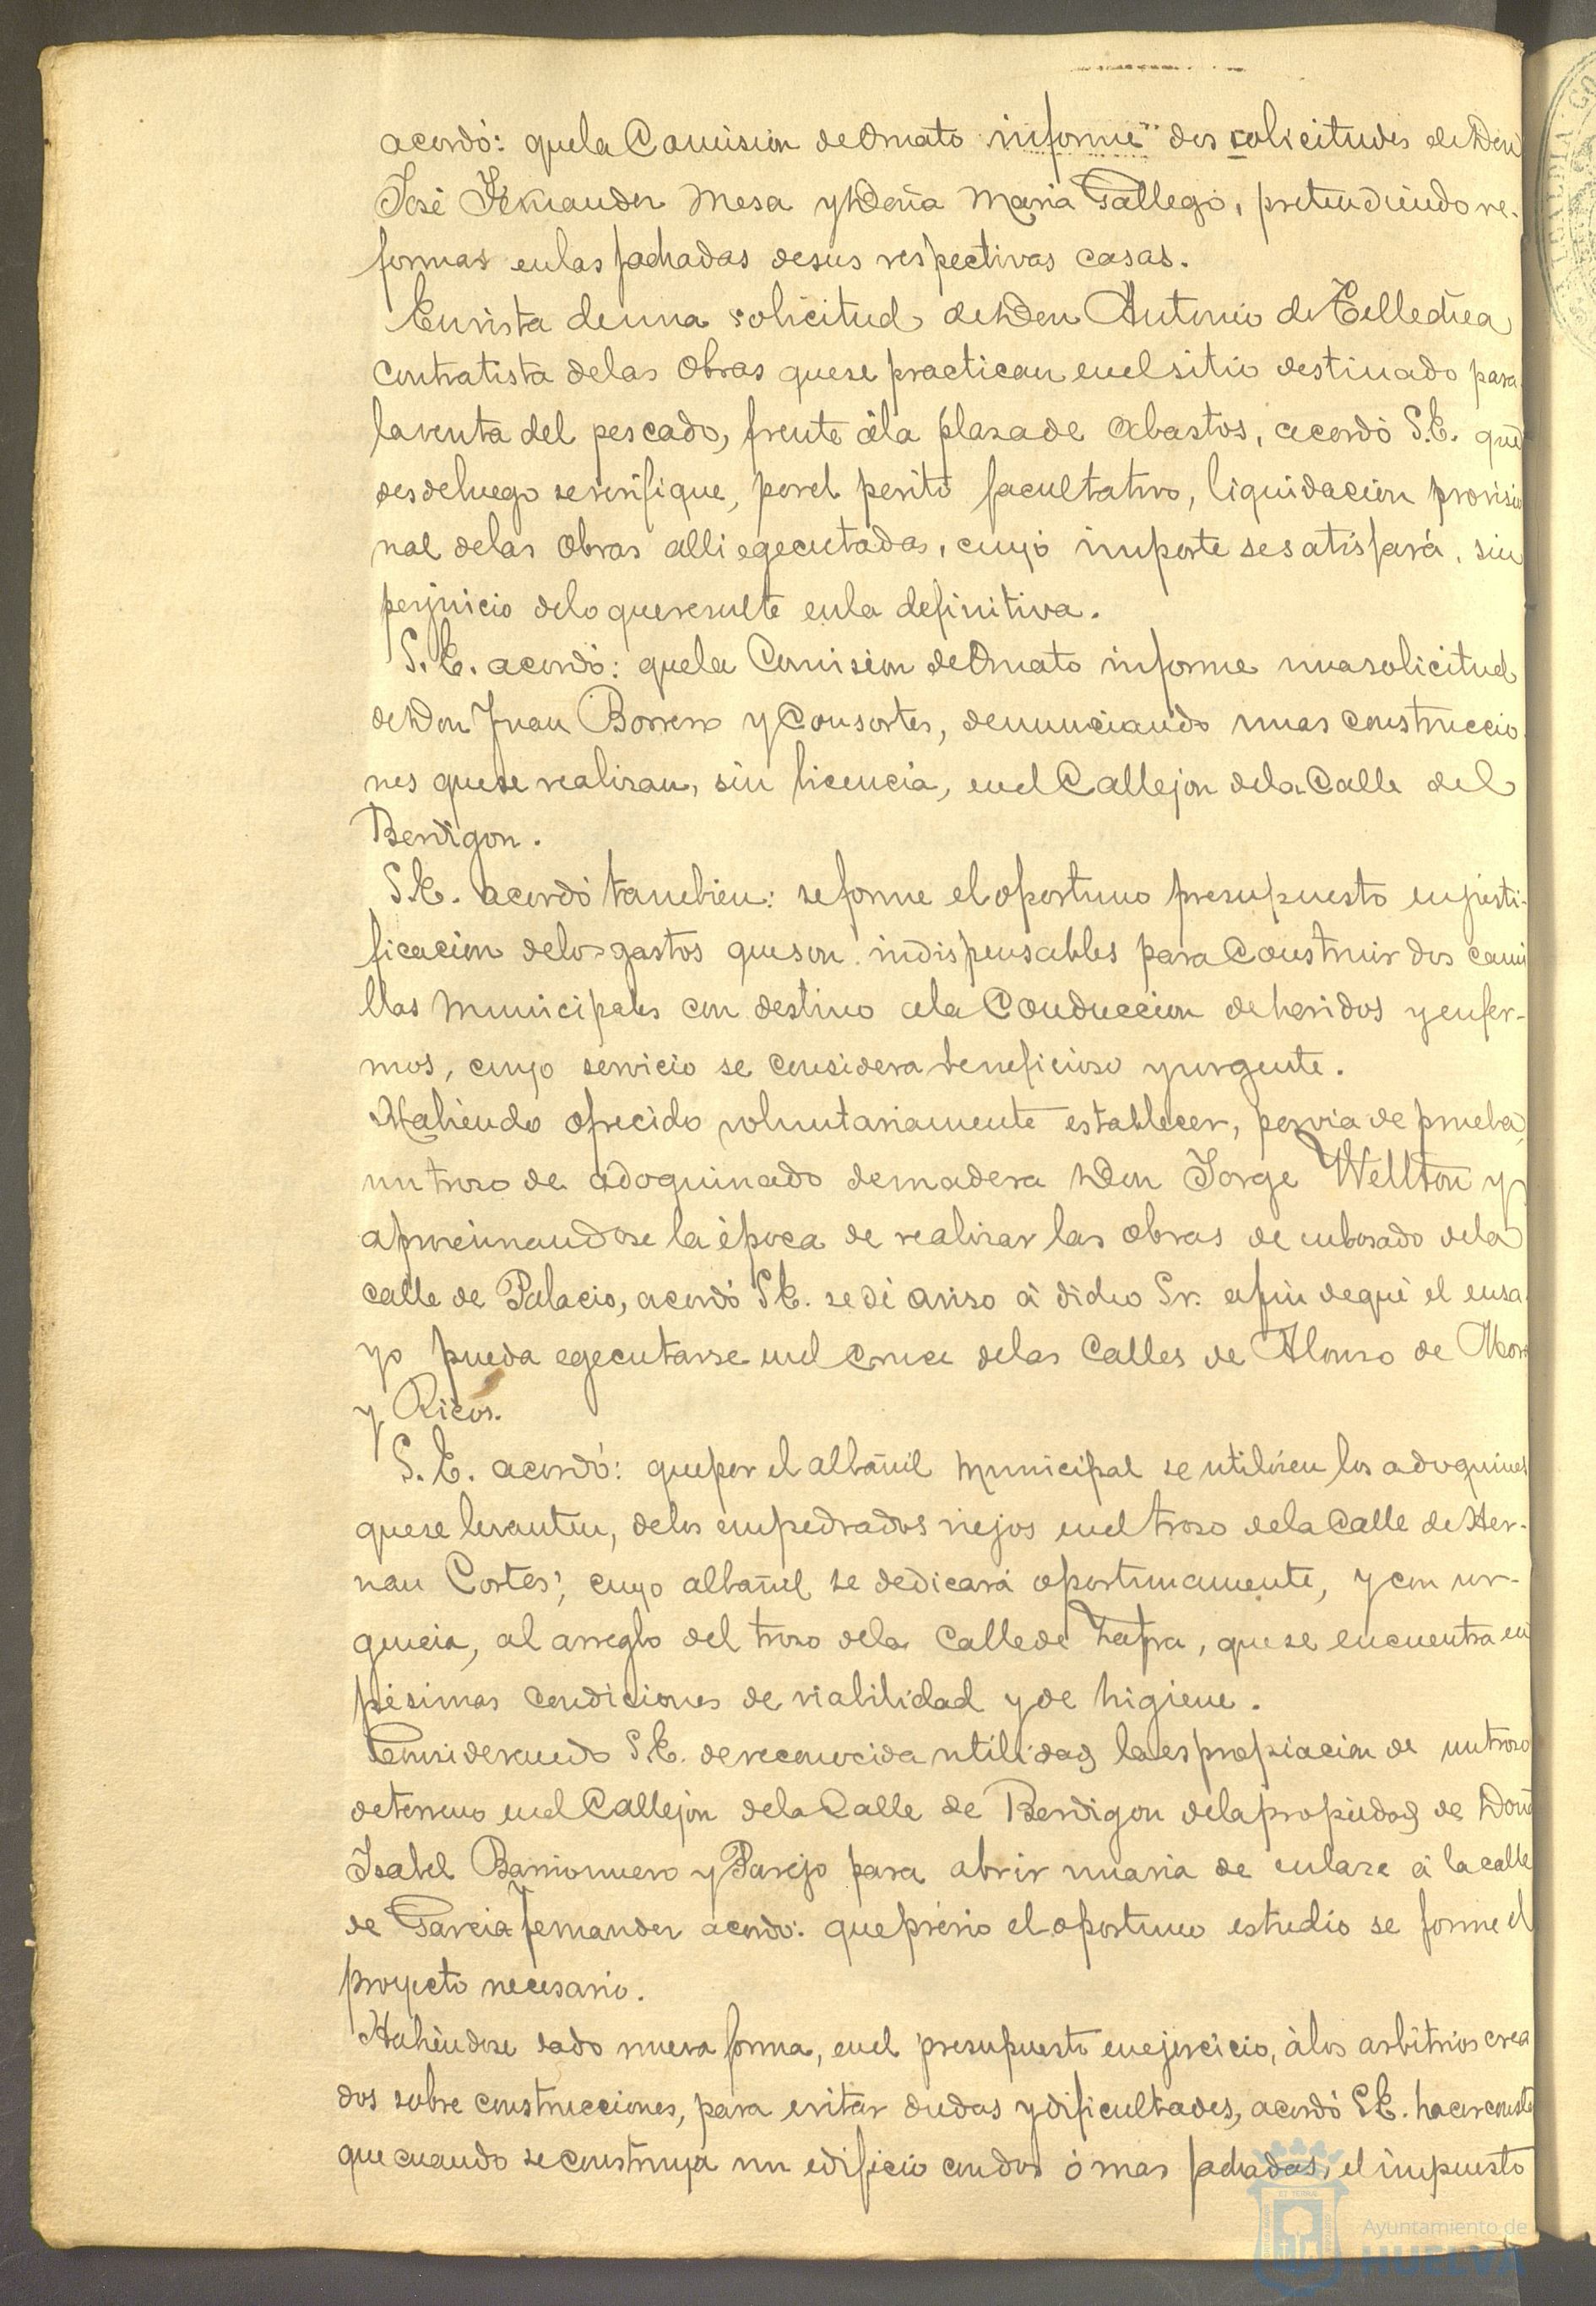 acordó: que la Comision de Ornato informe dos solicitudes de Don
José Fernandez Mesa y Doña Maria Gallego, pretendiendo re-
formas en las fachadas de sus respectivas casas.
En vista de una solicitud de Don Antonio de
contratista de las Obras que se practican en el sitio destinado para
la venta del pescado, frente á la plaza de Abastos, acordó S.E. que
desde luego se verifique, por el perito facultativo, liquidacion provisio
nal de las Obras alli egecutadas, cuyo importe se satisfará, sin
perjuicio de lo que resulte en la definitiva.
S.E. acordó: que la Comision de Ornato informe una solicitud
de Don Juan Borrero y Consortes, denunciando unas construccio
nes que se realizan, sin licencia, en el Callejon de la Calle del
Berdigon.
S.E. acordó tambien: se forme el oportuno presupuesto en justi-
ficacion de los gastos que son indispensables para Construir dos cami
llas Municipales con destino á la Conduccion de heridos y enfer-
mos, cuyo servicio se considera beneficioso y urgente.
Habiendo ofrecido voluntariamente establecer, por via de prueba,
un trozo de adoquinado de madera Don Jorge Wellton y
aproximandose la época de realizar las obras de embosado de la
calle de Palacio, acordó S.E. se dé aviso á dicho Sr. á fin de que el ensa
yo pueda egecutarse en el Cruce de las Calles de Alonso de Mora
y Ricos.
S.E. acordó: que por el albañil Municipal se utilicen los adoquines
que se levanten, de los empedrados viejos en el trozo de la Calle de Her-
nan Cortes; cuyo albañil se dedicará oportunamente, y con ur-
gencia, al arreglo del trozo de la Calle de Zafra, que se encuentra en
pésimas condiciones de viabilidad y de higiene.
Considerando S.E. de reconocida utilidad la espropiacion de un trozo
de terreno en el Callejon de la Calle de Berdigon de la propiedad de Doña
Isabel Barrionuevo y Parejo para abrir una via de enlaze á la calle
de Garcia Fernandez acordó: que prévio el oportuno estudio se forme el
proyecto necesario.
Habiendose dado nueva forma, en el presupuesto en ejercicio, á los arbitrios crea
dos sobre construcciones, para evitar dudas y dificultades, acordó S.E. hacer const
que cuando se construya un edificio con dos ó mas fachadas, el impuesto
Ayuntamiento de
HUELVA